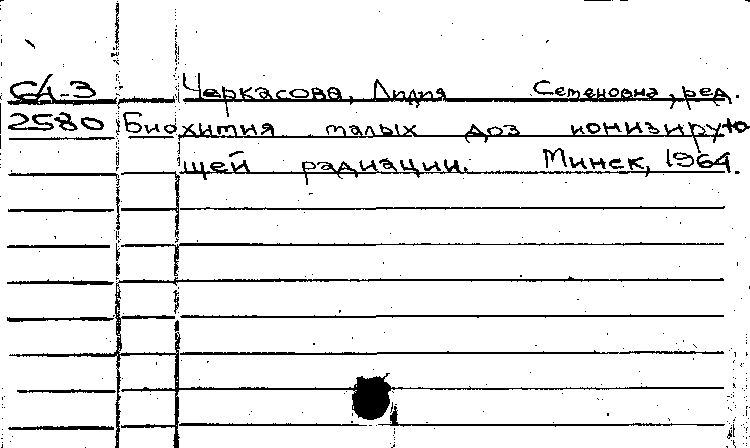 СА-3 Черкасова, Лидия Семеновна, ред.
2580 Биохимия малых доз ионизирую
щей радиации. Минск, 1964.